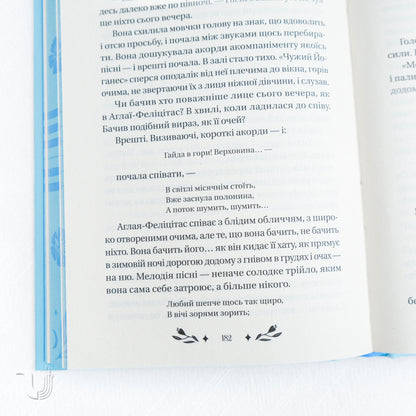 десь далеко вже по півночі. — Господи, тужив
ще ніхто сього вечера.
Вона схилила мовчки голову на знак, що вдоволить
і отсю просьбу, і почала між звуками щось перебира-
ти. Вона дошукувала акорди акомпаніменту якоїсь
пісні — і врешті почала. В залі стало тихо. «Чужий Йо-
ганес» сперся оподалік від неї плечима до вікна, горів
очима, не звертаючи їх з лиця ніжної дівчини, і слухав.
Чи бачив хто поважніше лице сього вечера, як
в Аглаї-Феліцітас? В хвилі, коли ладилася до співу.
Бачив подібний вираз, як її очей?
Врешті. Визиваючі, короткі акорди — і:
Гайда в гори! Верховина... —
почала співати, —
В світлі місячнім стоїть,
Вже заснула полонина,
А поток шумить, шумить...
Аглая-Феліцітас співає з блідим обличчям, з широ-
ко отвореними очима, але те, що вона бачить, не бачить
ніхто. Вона бачить його... як він кидає її хату, як прямує
в зимовій ночі дорогою додому з гнівом в грудях і очах —
на ню. Мелодія пісні — неначе солодке трійло, яким
вона сама себе затроює, а більше нікого.
Любий шепче щось так щиро,
В вічі зорями зорить;
182
Голо
сили. І
«М
і пали
додому
бе